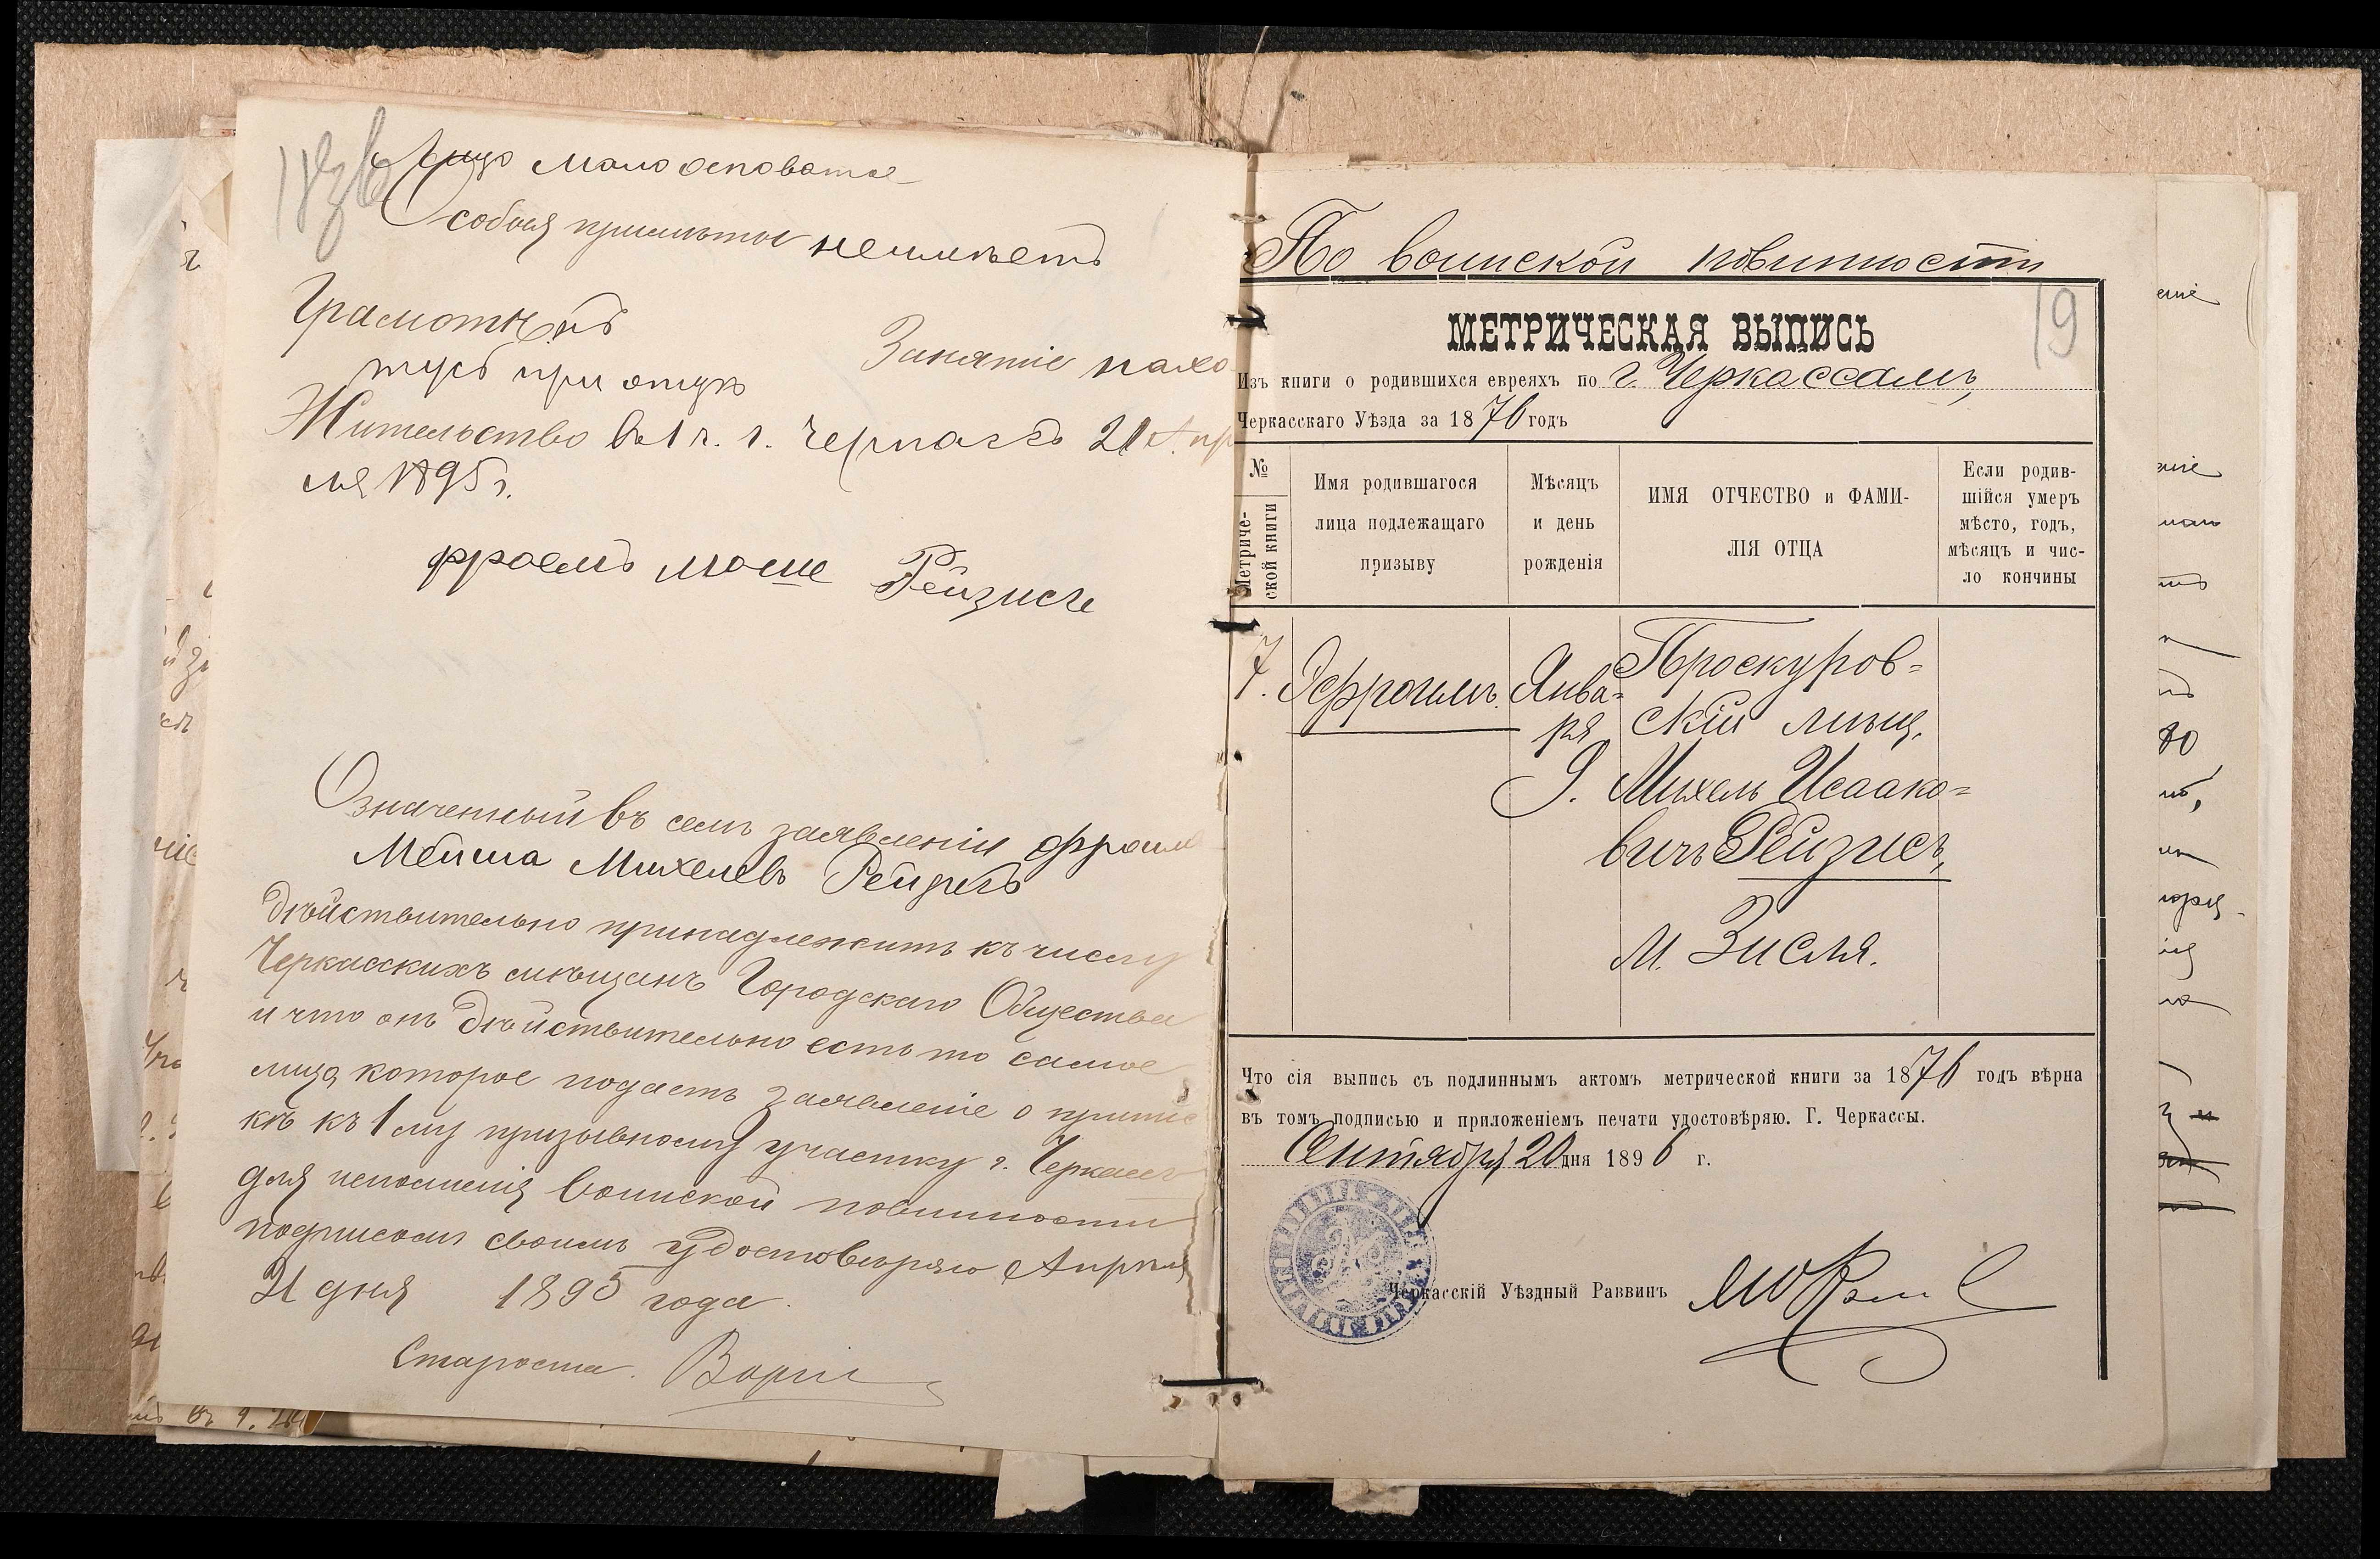 Лицо мало осповатое
Особыя приметы неимеетъ
Грамотный
Занятіе нахо
при отцу
Жительство в 1 ч. г. Черкассъ 21 Апр
ля 1895 г.
Фроемъ Моше Рейзисъ
Означенный въ семъ заявленіи Фроим
Мейша Михелевъ Рейзисъ
действительно принадлежитъ къ числу
Черкасскихъ мещанъ Городскаго Общества
и что онъ действительно есть то самое
лицо которое подаетъ заявленіе о припис
кѣ къ 1 му призывному участку г. Черкассъ
для исполненія воинской повинности
подписомъ своимъ удостоверяю Апреля
21 дня 1895 года.
Староста.
По воинской повинности
19
МЕТРИЧЕСКАЯ ВЫПИСЬ
Изъ книги о родившихся евреяхъ по г. Черкассамъ,
Черкасскаго Уѣзда за 1876 годъ
№ Метриче-
ской книги
Имя родившагося
лица подлежащаго
призыву
Мѣсяцъ
и день
рожденія
ИМЯ ОТЧЕСТВО и ФАМИ-
ЛІЯ ОТЦА
Если родив-
шійся умеръ
мѣсто, годъ,
мѣсяцъ и чис-
ло кончины
7.
Эфроимъ.
Янва=
ря
9.
Проскуров=
скій мѣщ.
Михель Исаако=
вичъ Рейзисъ,
М. Зисля.
Что сія выпись съ подлиннымъ актомъ метрической книги за 1876 годъ вѣрна
въ томъ подписью и приложеніемъ печати удостовѣряю. Г. Черкассы.
Сентября 20 дня 1896 г.
Черкасскій Уѣздный Раввинъ